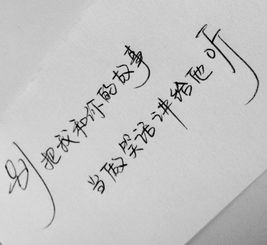 别把我和你的故事
当做笑话讲给他听